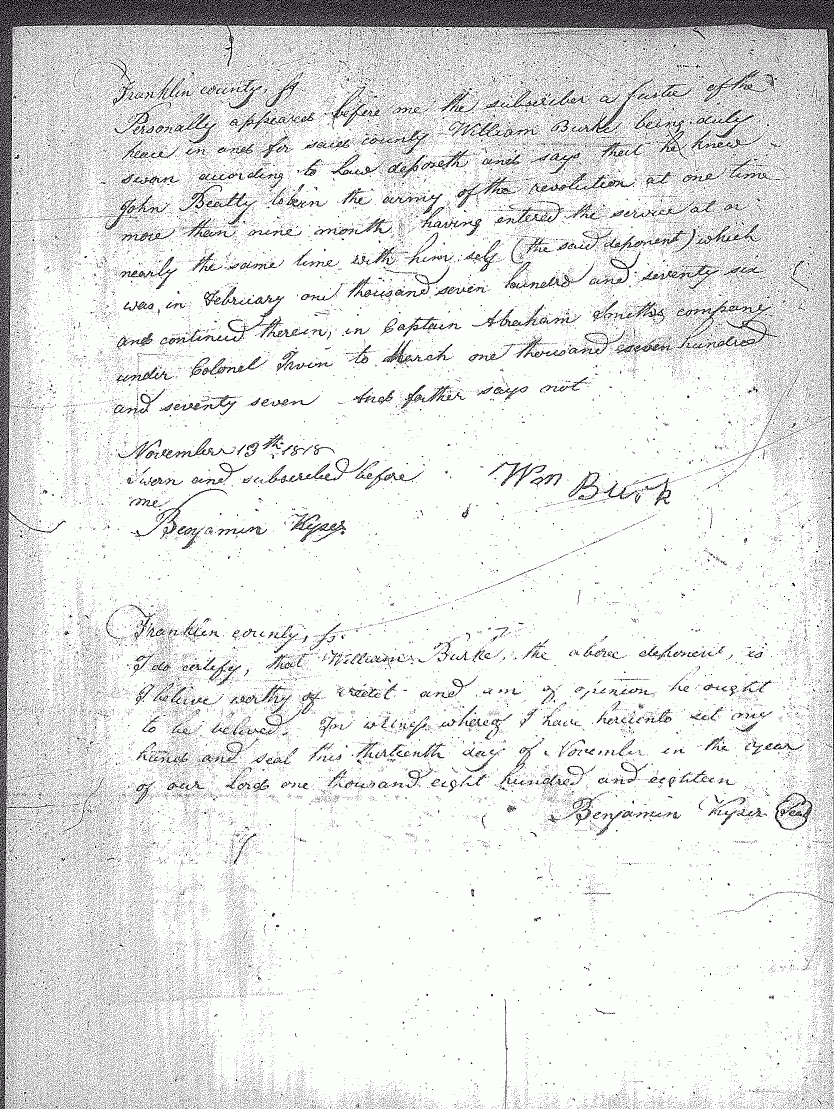 Franklin county, ss
Personally appeared before me the subscriber a Justice of the
peace in and for said county William Burke being duly
sworn according to Law deposeth and says that he knew
John Beatty to be in the army of the revolution at one time
more than nine month having entered the service at or
nearly the same time with him self (the said deponent) which
was, in February one thousand seven hundred and seventy six
and continued therein, in Captain Abraham Smiths company
under Colonel Irvin to March one thousand seven hundred
and seventy seven And farther says not
November 13th 1818
Sworn and subscribed before
me
Benjamin Kyser
Wm Burk
Franklin county, ss.
I do certify, that William Burke, the above deponent, is
I believe worthy of credit and am of opinion he ought
to be beleved. In witness whereof I have hereunto set my
hand and seal this thirteenth day of November in the year
of our Lord one thousand eight hundred and eighteen
Benjamin Kyser Seal